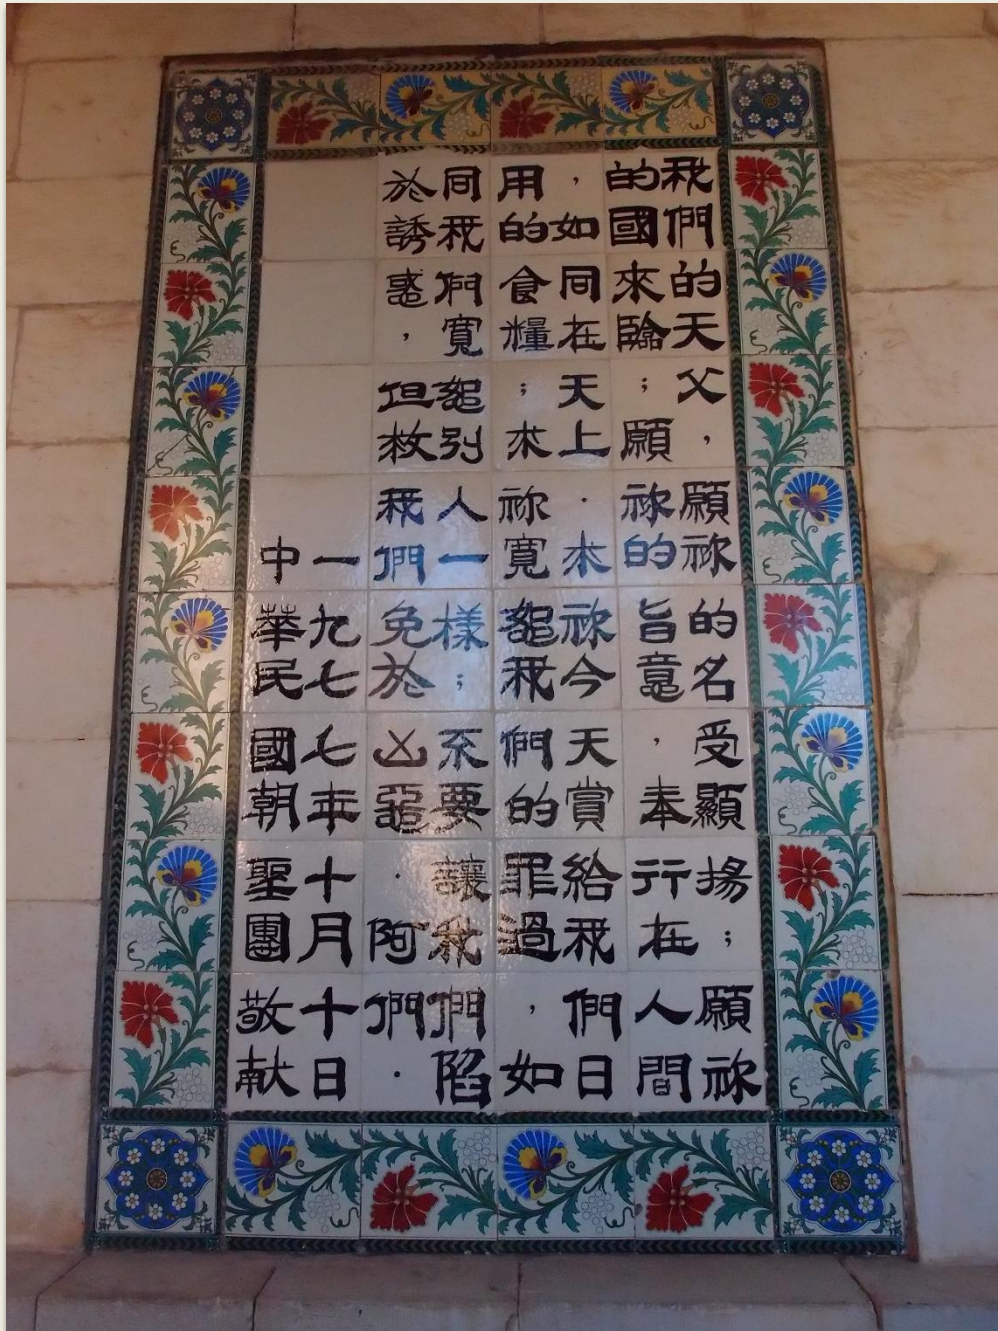 我們的天父，願祢的名受顯揚；願祢
的國來臨；願祢的旨意，奉行在人間
，如同在天上．求祢今天賞給我們日
用的食糧；求祢寬恕我們的罪過，如
同我們寬恕別人一樣；不要讓我們陷
於誘惑，但救我們免於凶惡．阿們．
一九七七年十月十日
中華民國朝聖團敬献